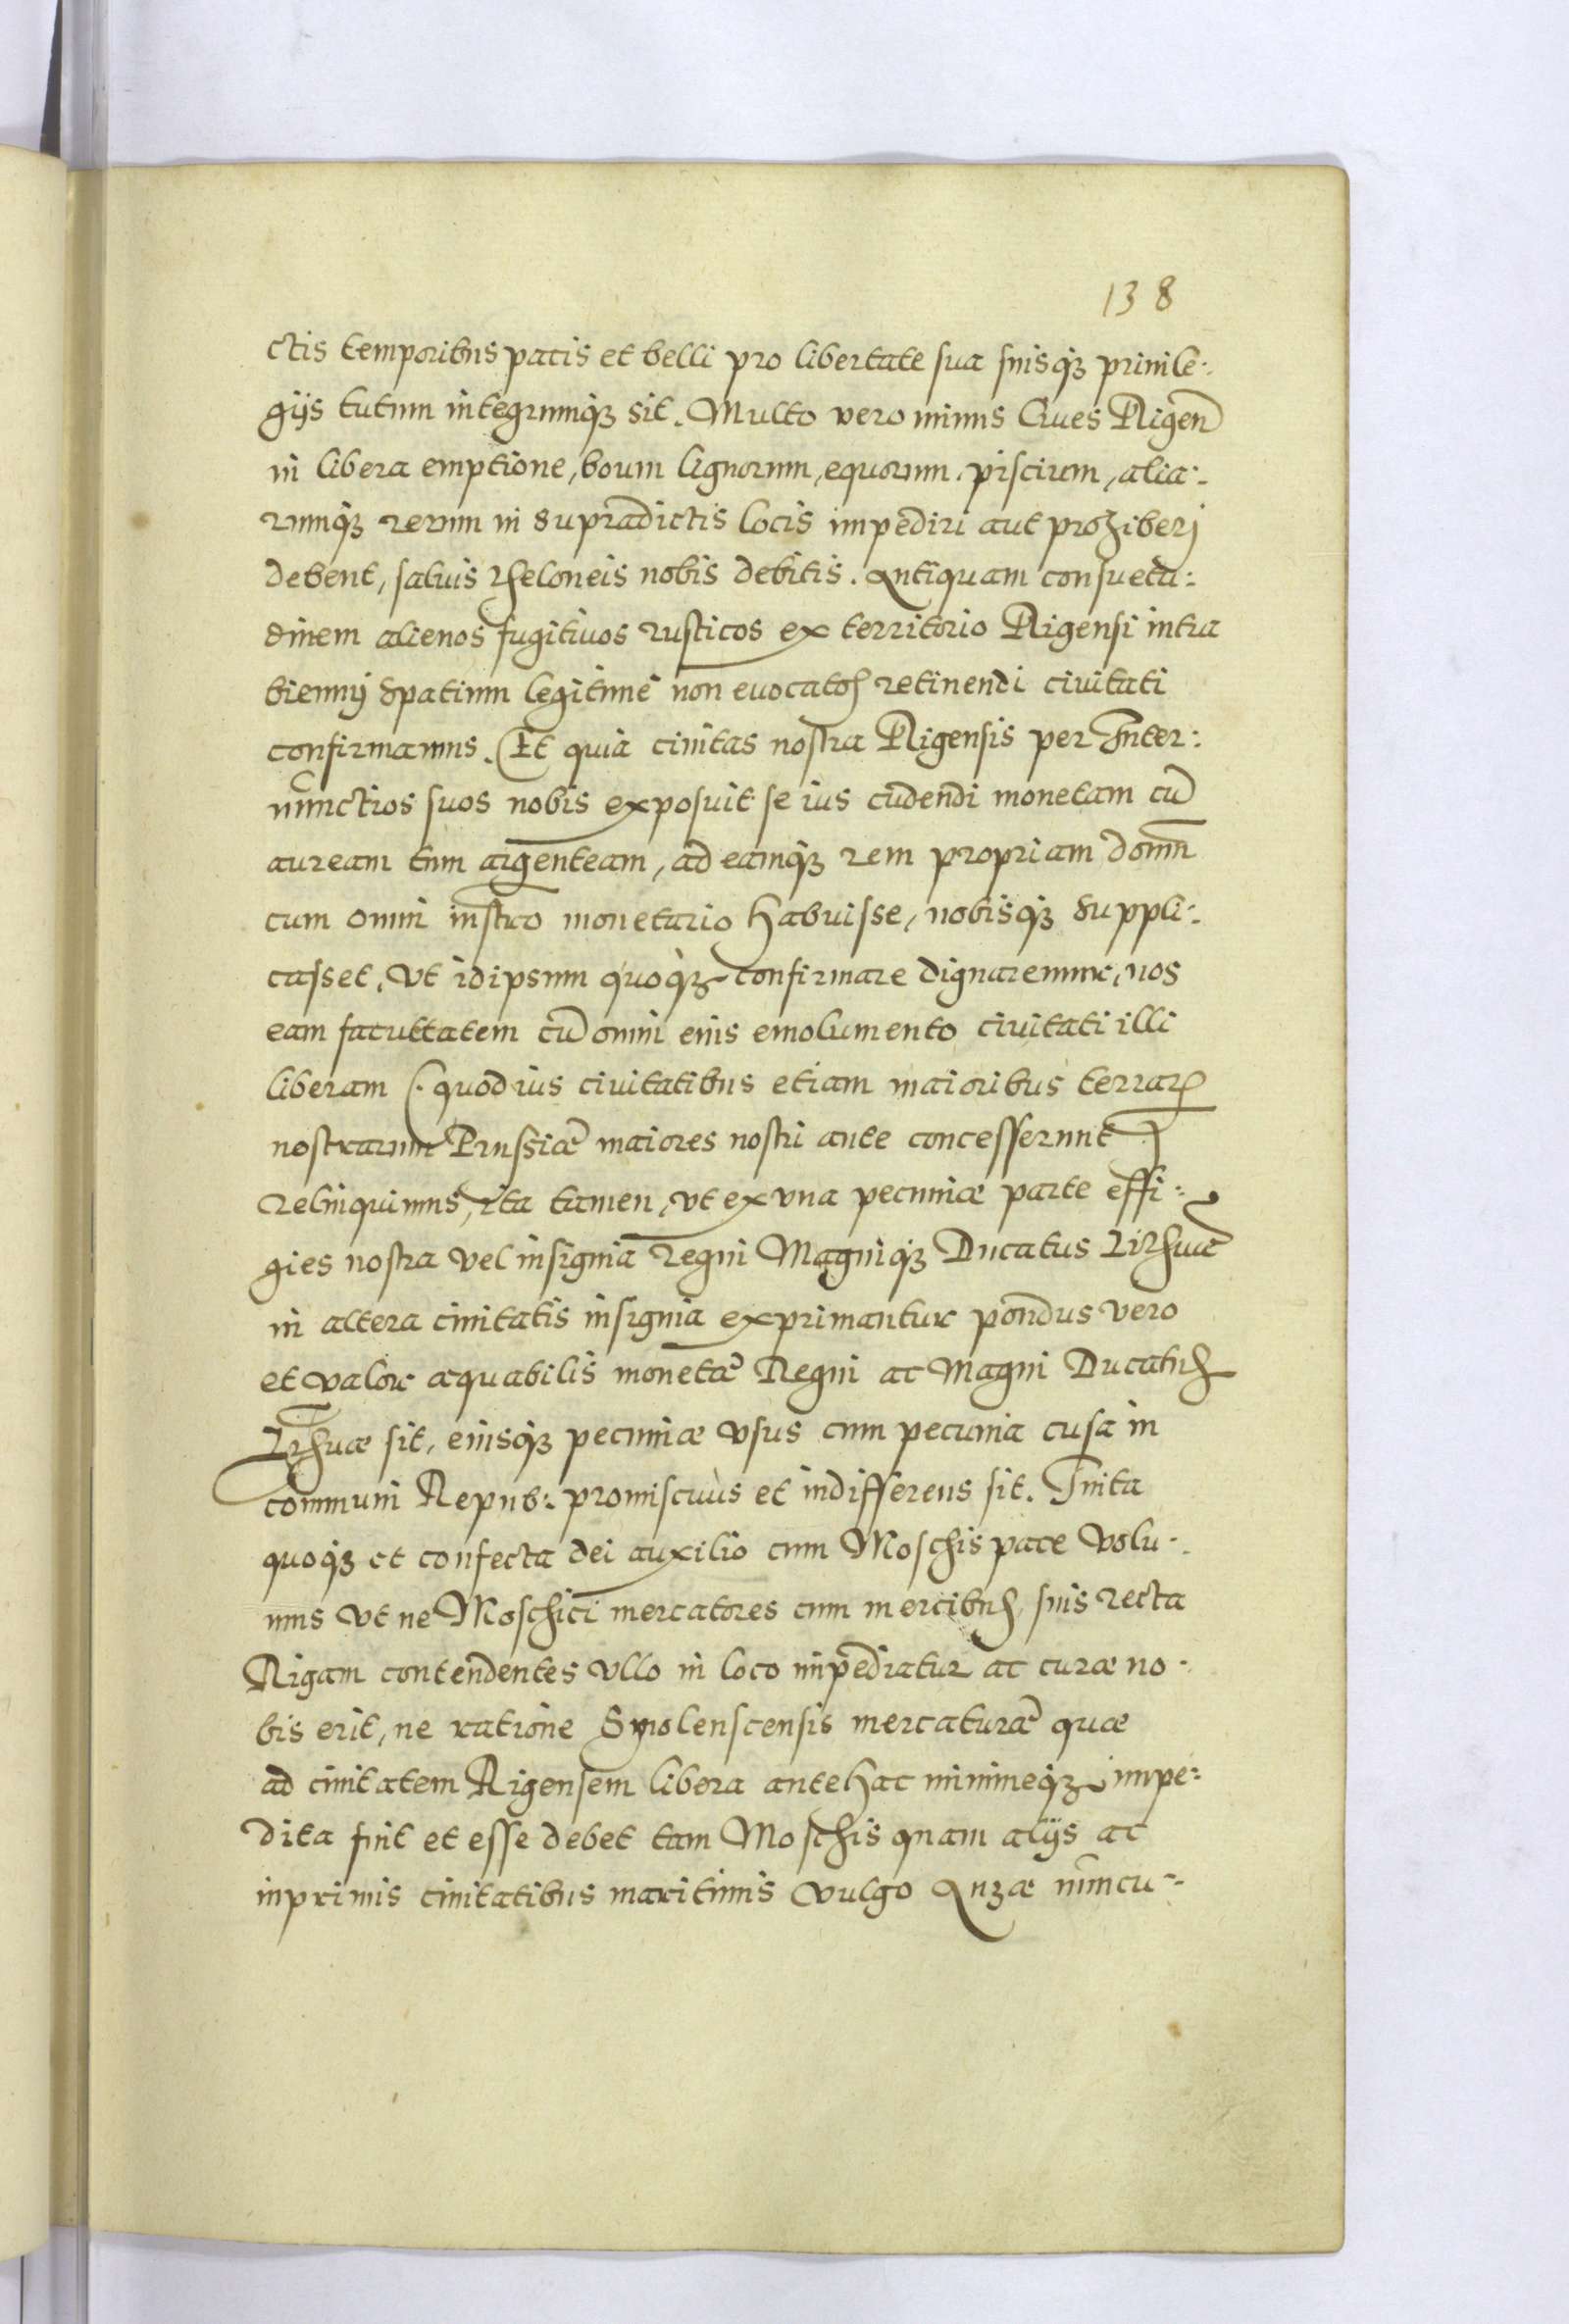 138
ctis temporibus pacis et belli pro libertate sua suisq₃ priuile:
gijs tutum integrumq₃ sit. Multo vero minus Ciues Rigen̄
in libera emptione, boum lignorum, equorum, piscium, alia:
rumq₃ rerum in supradictis locis impediri aut prohiberj
debent, saluis theloneis nobis debitis. Antiquam consuetu:
dinem alienos fugitiuos rusticos ex territorio Rigensi intra
biennij spatium legitime non euocatos retinendi ciuitati
confirmamus. Et quia ciuitas nostra Rigensis per Inter:
nunctios suos nobis exposuit se ius cudendi monetam cū
auream tum argenteam, ad eamq₃ rem propriam domū
cum omni instro monetario habuisse, nobisq₃ suppli:
casset, vt idipsum quoq₃ confirmare dignaremur, nos
eam facultatem cū omni eius emolumento ciuitati illi
liberam (: quod ius ciuitatibus etiam maioribus terrarꝝ
nostrarum Prussiæ maiores nostri ante concesserunt)
relinquimus, ita tamen, vt ex vna pecuniæ parte effi:
gies nostra vel insignia regni Magniq₃ Ducatus Lithuæ
in altera ciuitatis insignia exprimantur pondus vero
et valor æquabilis monetæ Regni ac Magni Ducatus
Lithuæ sit, eiusq₃ pecuniæ vsus cum pecunia cusa in
communi Repub: promiscuùs et indifferens sit. Inita
quoq₃ et confecta dei auxilio cum Moschis pace volu:
mus vt ne Moschici mercatores cum mercibus suis recta
Rigam contendentes vllo in loco impediātur ac curæ no:
bis erit, ne ratione Smolenscensis mercaturæ quæ
ad ciuitatem Rigensem libera antehac minimeq₃ impe:
dita fuit et esse debet tam Moschis quam alijs ac
inprimis ciuitatibus maritimis vulgo Anzæ nuncu: